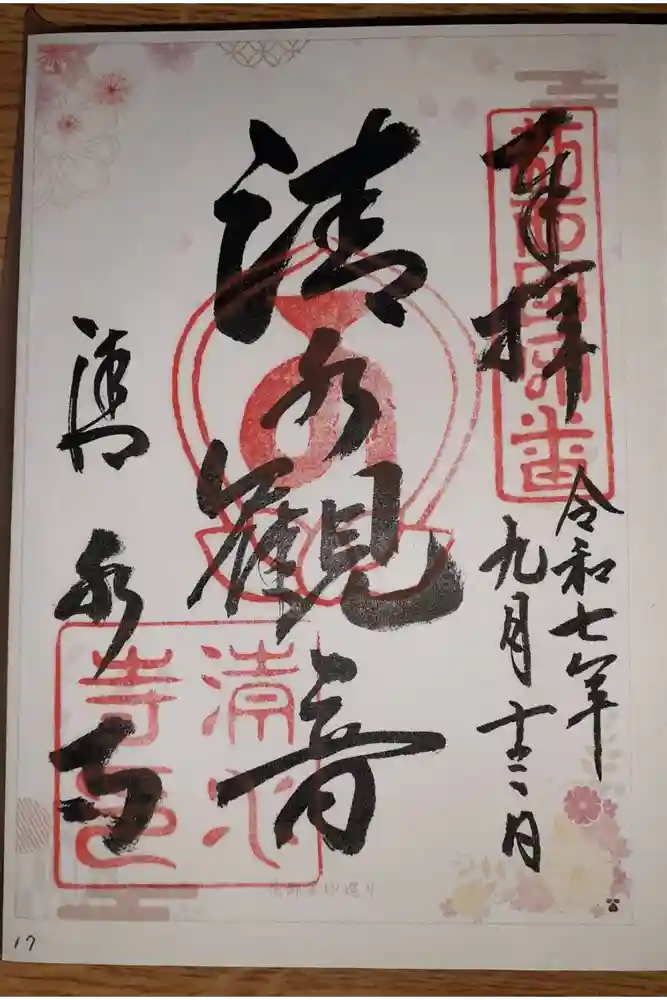 奉拝
令和七年
九月十二日
清水観音
清水寺
清水
寺印
17